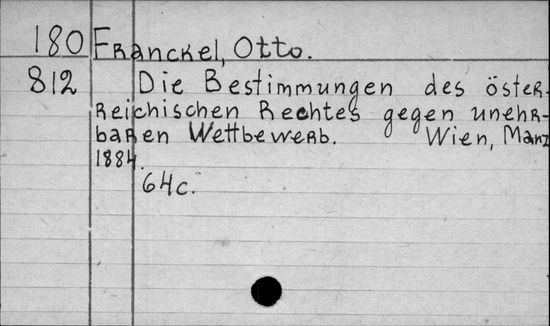 180 Franckel, Otto.
812 Die Bestimmungen des öster-
reichischen Rechtes gegen unehr-
baren Wettbewerb. Wien, Manz
1884.
64c.